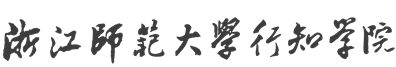 浙江師範大學行知学院